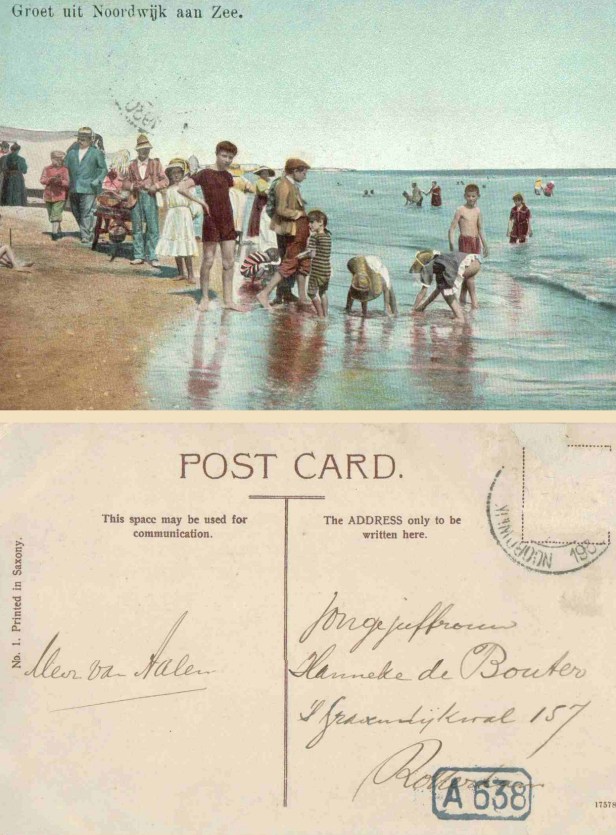 Groet uit Noordwijk aan Zee.
POST CARD.
This space may be used for
communication.
The ADDRESS only to be
written here.
No. 1. Printed in Saxony.
NOORDWIJK
van Aalen
Jongejuffrouw
Hanneke de Bouter
's Gravendijkwal 157
Rotterdam
A 638
17578